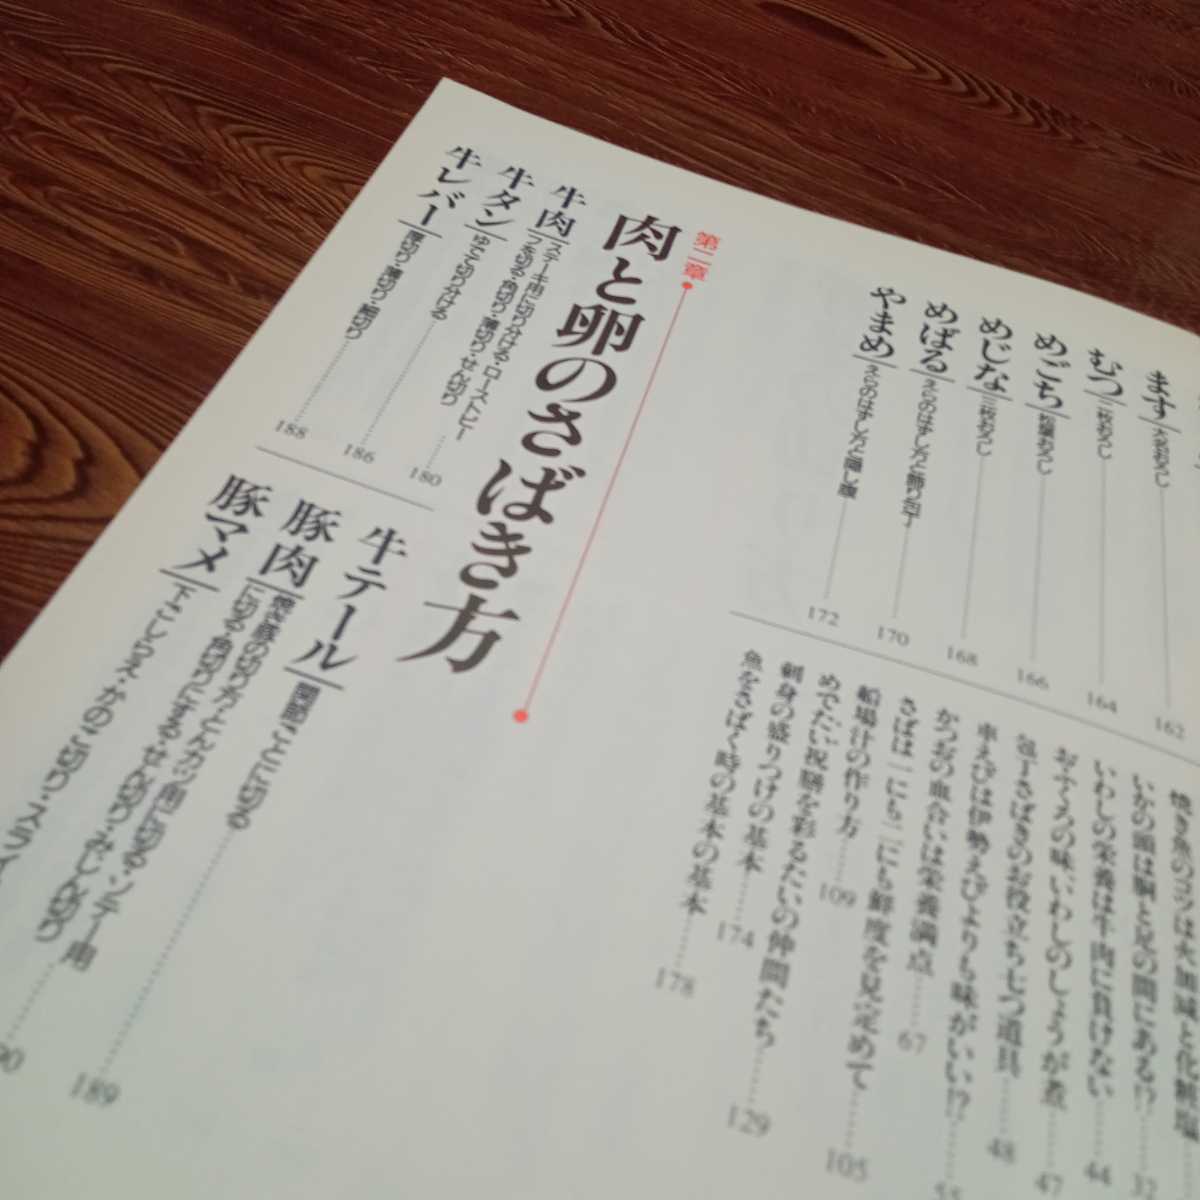 ます 大名おろし 162
むつ 三枚おろし 164
めごち 松葉おろし 166
めじな 三枚おろし 168
めばる えらのはずし方と飾り包丁 170
やまめ えらのはずし方と隠し腹 172
焼き魚のコツは火加減と化粧塩
いかの頭は胴と足の間にある!? 32
いわしの栄養は牛肉に負けない 44
おふくろの味・いわしのしょうが煮 47
包丁さばきのお役立ち七つ道具 48
車えびは伊勢えびよりも味がいい!? 55
かつおの血合いは栄養満点 67
さばは一にも二にも鮮度を見定めて 105
船場汁の作り方 109
めでたい祝膳を彩るたいの仲間たち 129
刺身の盛りつけの基本 174
魚をさばく時の基本の基本 178
第二章
肉と卵のさばき方
牛肉 ステーキ用に切り分ける・ローストビー
フを切る・角切り・薄切り・せん切り 180
牛タン ゆでて切り分ける 186
牛レバー 厚切り・薄切り・細切り 188
牛テール 関節ごとに切る 189
豚肉 焼き豚の切り方・とんカツ用に切る・ソテー用
に切る・角切りにする・せん切り・みじん切り 90
豚マメ 下ごしらえ・かのこ切り・スライ